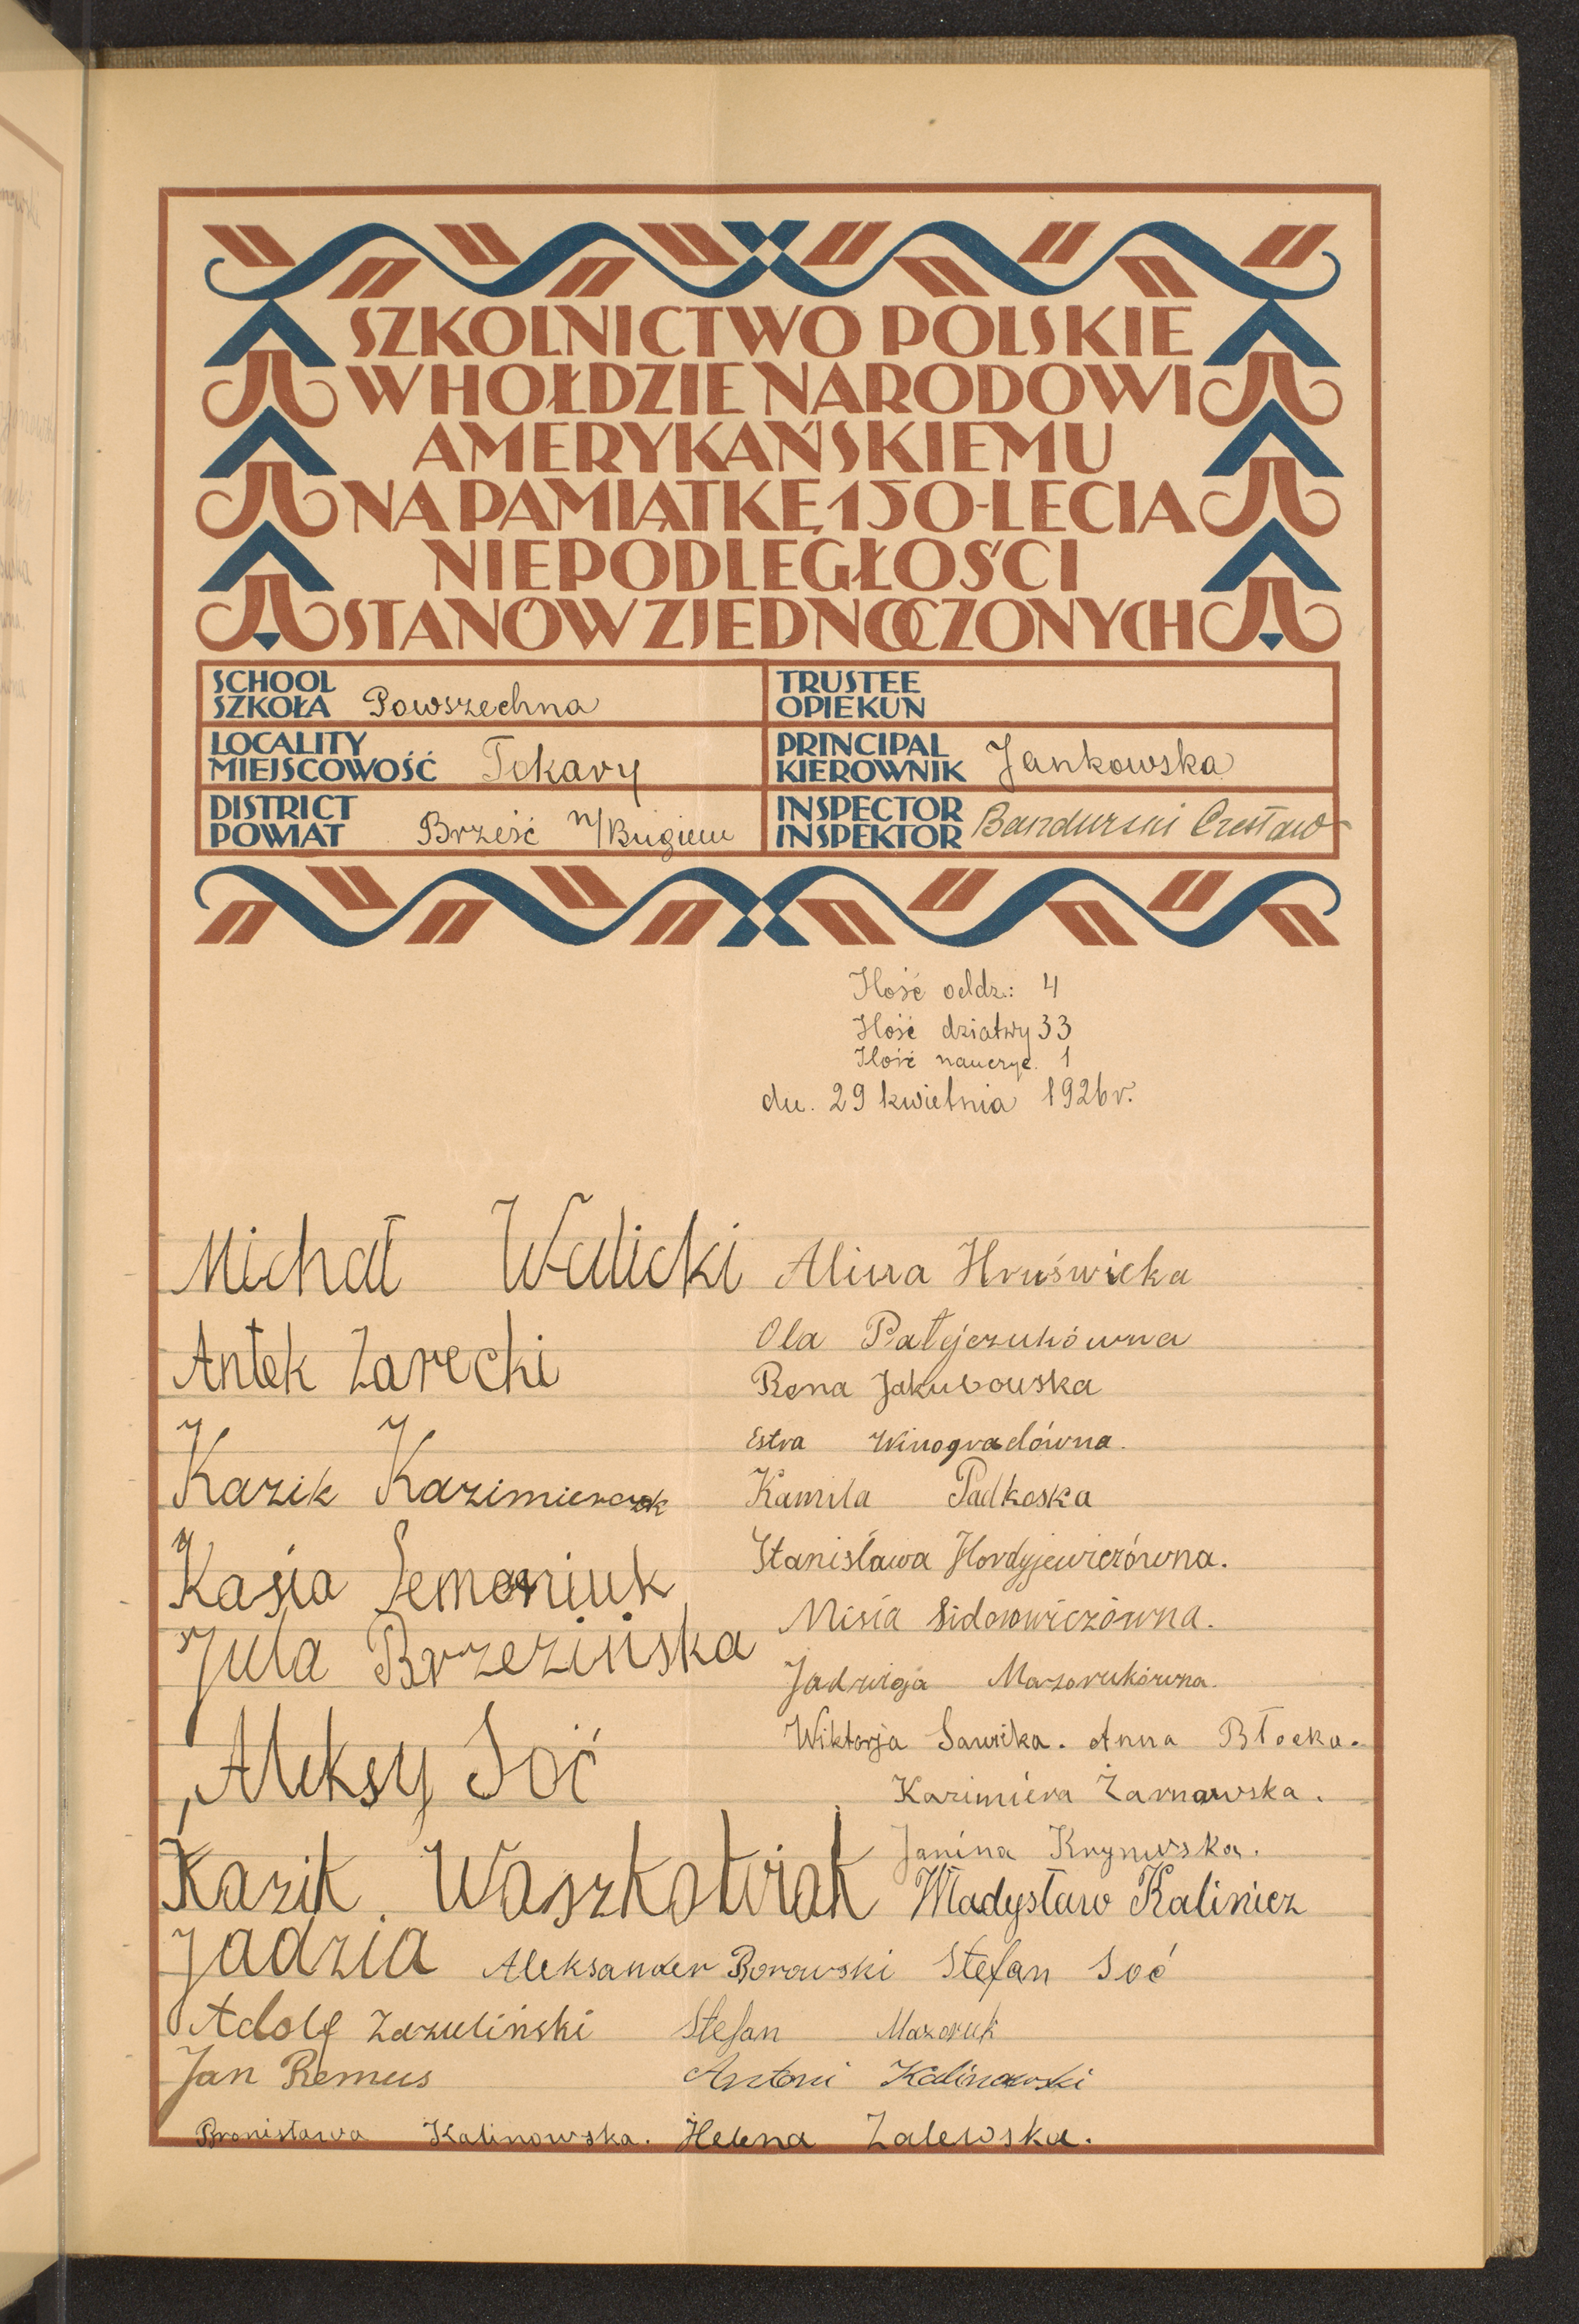 SZKOLNICTWO POLSKIE
W HOŁDZIE NARODOWI
AMERYKAŃSKIEMU
NA PAMIĄTKĘ 150-LECIA
NIEPODLEGŁOŚCI
STANÓW ZJEDNOCZONYCH
SCHOOL
SZKOŁA Powszechna
TRUSTEE
OPIEKUN
LOCALITY
MIEJSCOWOŚĆ Tokary
PRINCIPAL
KIEROWNIK Jankowska
DISTRICT
POWIAT Brześć n/Bugiem
INSPECTOR
INSPEKTOR Bandurski Czesław
Ilość oddz.: 4
Ilość dziatwy 33
Ilość nauczyc. 1
dn. 29 kwietnia 1926 r.
Michał Walicki
Antek Zarecki
Kazik Kazimierczak
Kasia Semeniuk
Jula Brzezińska
Aleksy Soć
Kazik Waszkowiak
Jadzia
Alina Hruświcka
Ola Patejczukówna
Rena Jakubowska
Estra Winogradówna.
Kamila Padkoska
Stanisława Hordyjewiczówna.
Misia Sidorowiczówna.
Jadwiga Mazorukówna.
Wiktorja Sawicka. Anna Błocka.
Kazimiera Żarnowska.
Janina Krynwska.
Władysław Kalinicz
Aleksander Borowski Stefan Soć
Adolf Zazuliński Stefan Mazoruk
Jan Remus Antoni Kalinowski
Bronisława Kalinowska. Helena Zalewska.